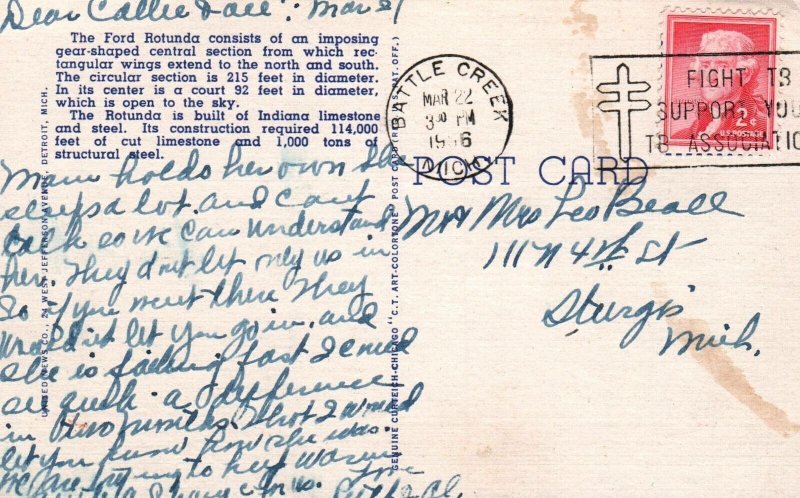 Dear Callie & all: Mar 21
The Ford Rotunda consists of an imposing
gear-shaped central section from which rec-
tangular wings extend to the north and south.
The circular section is 215 feet in diameter.
In its center is a court 92 feet in diameter,
which is open to the sky.
The Rotunda is built of Indiana limestone
and steel. Its construction required 114,000
feet of cut limestone and 1,000 tons of
structural steel.
Mum holds her own she
sleeps a lot and can't
talk so we can understand
her. They don't let only us in
So if you went there they
wouldn't let you go in. and
she is failing fast I could
see such a difference
in two months. thot I would
let you know how she was.
we are trying to keep warm
UNITED NEWS CO., 24 WEST JEFFERSON AVENUE, DETROIT, MICH.
GENUINE CURTEICH-CHICAGO "C.T. ART-COLORTONE" POST CARD (REG. U.S. PAT. OFF.)
BATTLE CREEK
MAR 22
3 30 PM
1956
MICH
FIGHT TB
SUPPORT YOU
TB ASSOCIATIO
2¢
U.S. POSTAGE
POST CARD
Mr Mrs Leo Beall
111 N 4th St
Sturgis
Mich.